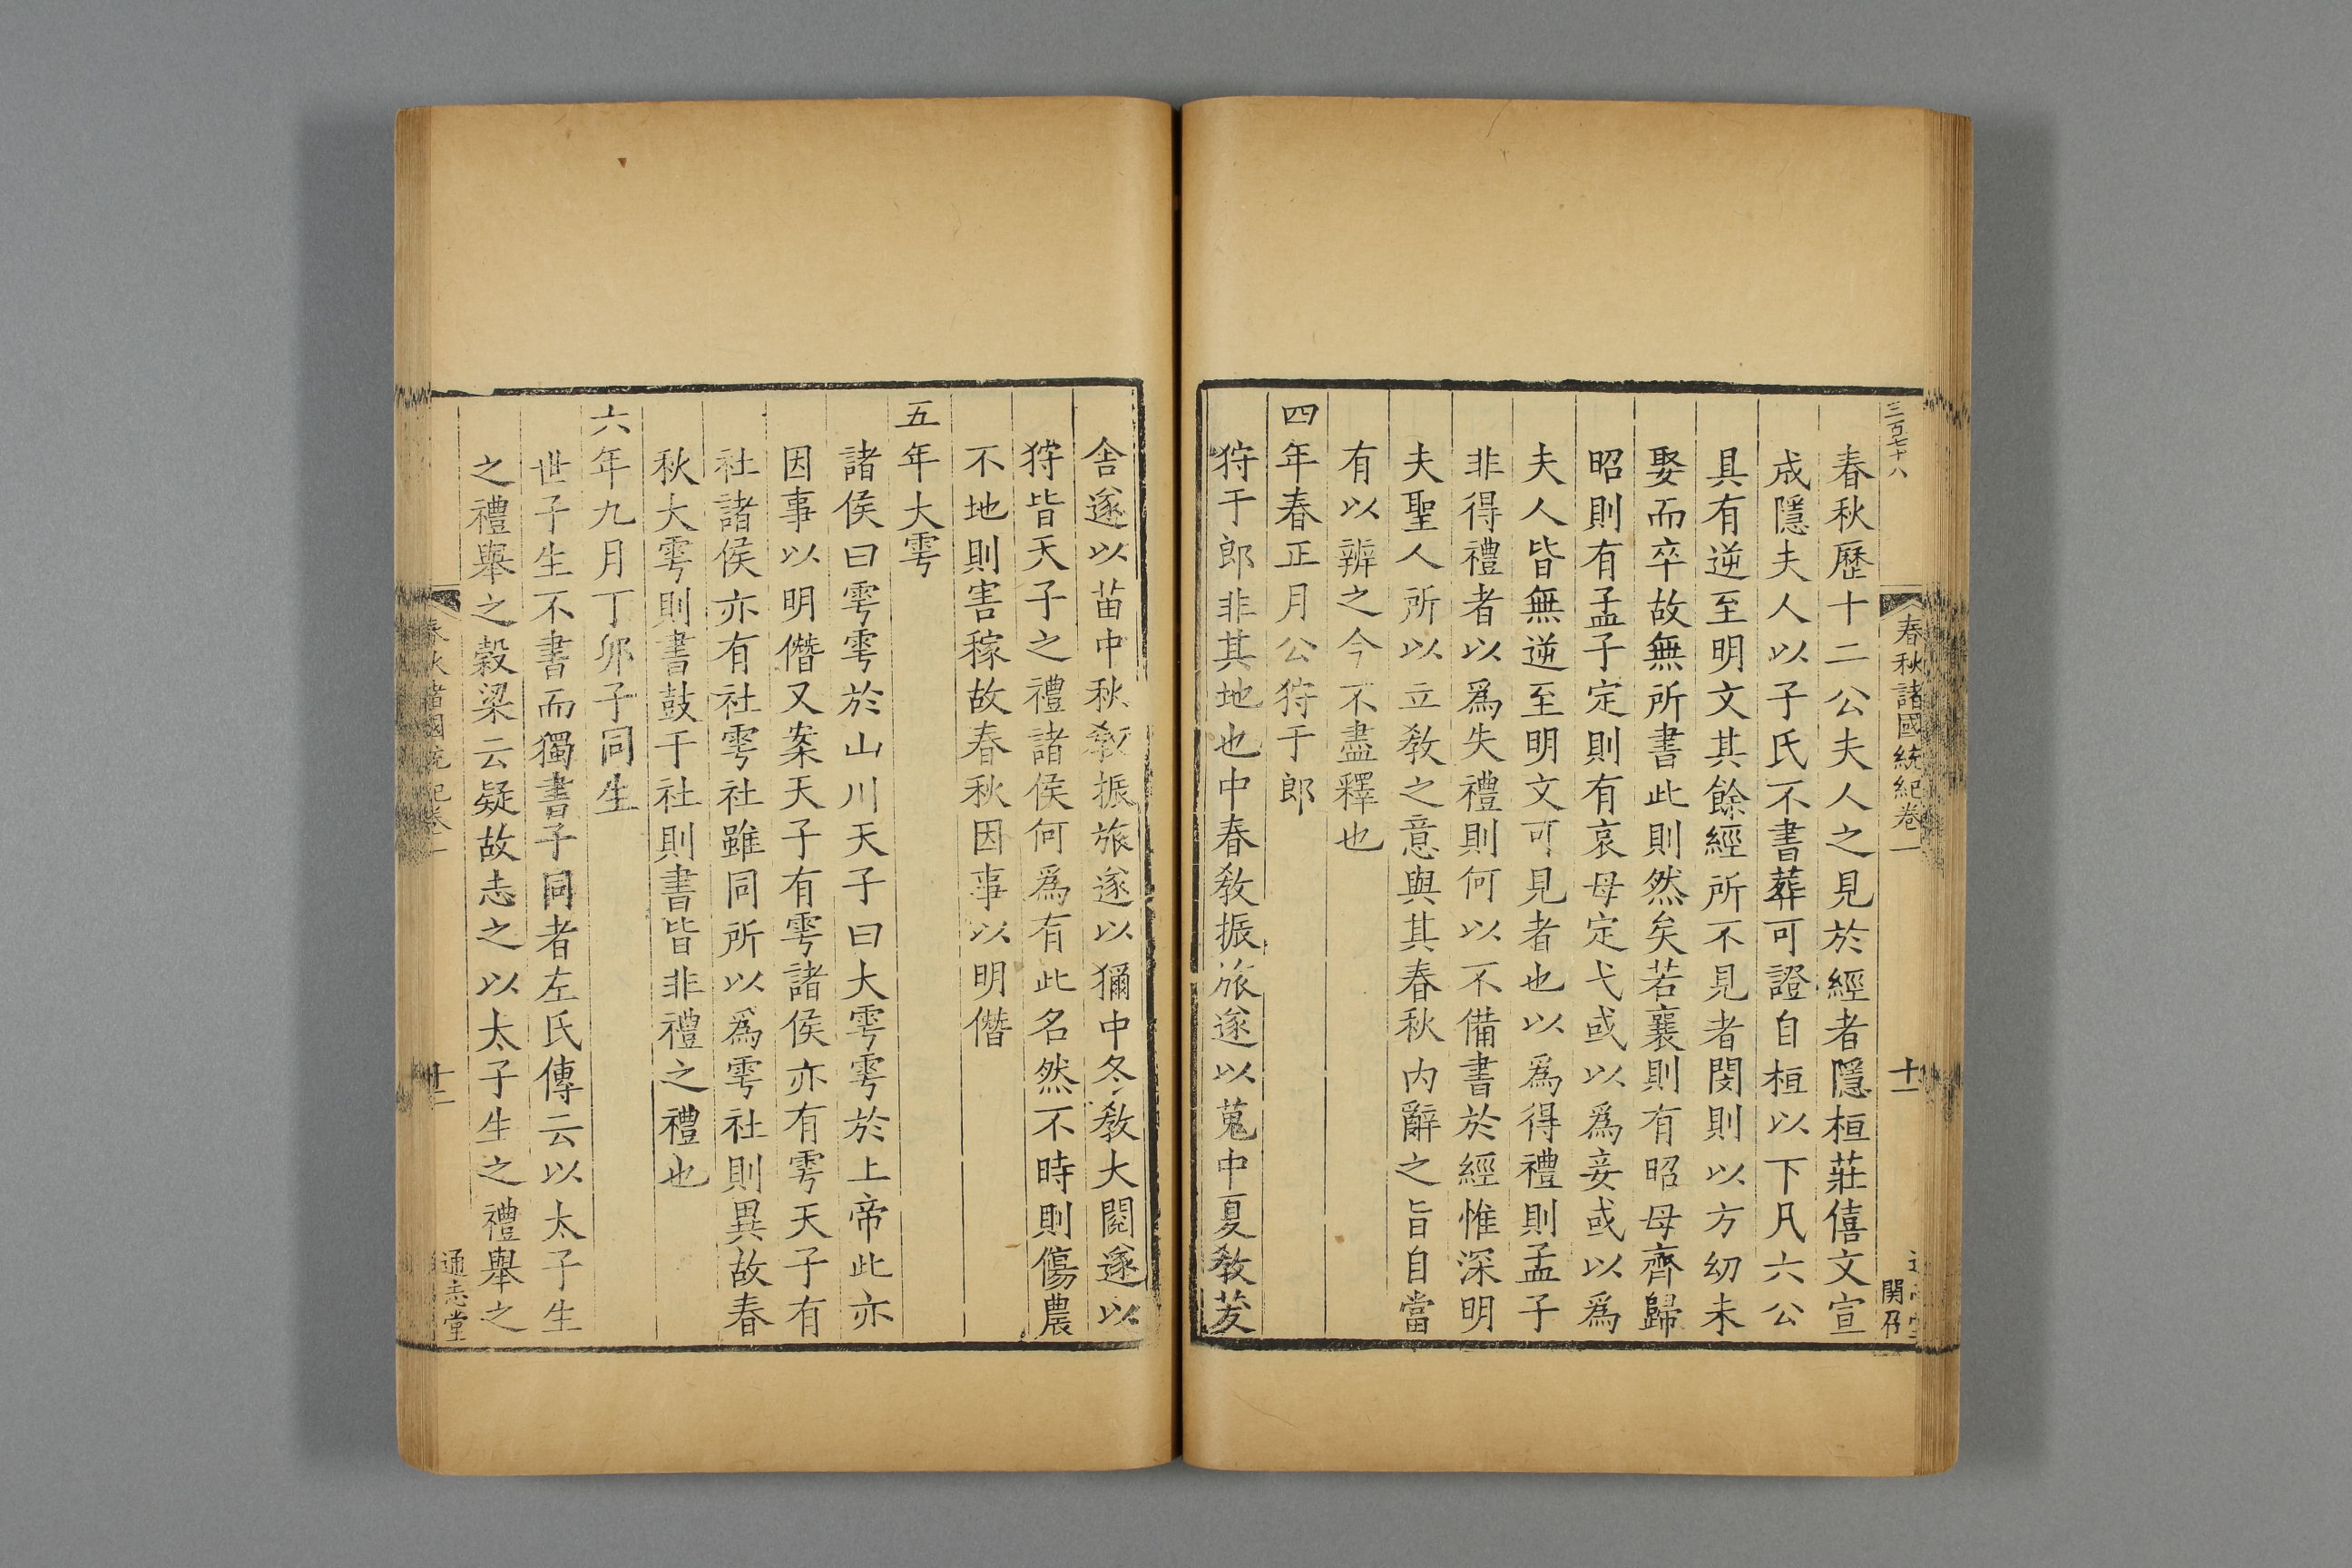 三百七十八
春秋諸國統紀卷一
十一
関召
春秋歷十二公夫人之見於經者隱桓莊僖文宣
成隱夫人以子氏不書葬可證自桓以下凡六公
具有逆至明文其餘經所不見者閔則以方幼未
娶而卒故無所書此則然矣若襄則有昭母齊歸
昭則有孟子定則有哀母定弋或以爲妾或以爲
夫人皆無逆至明文可見者也以爲得禮則孟子
非得禮者以爲失禮則何以不備書於經惟深明
夫聖人所以立敎之意與其春秋内辭之旨自當
有以辨之今不盡釋也
四年春正月公狩于郎
狩于郎非其地也中春敎振旅遂以蒐中夏敎茇
舍遂以苗中秋敎振旅遂以獮中冬敎大閱遂以
狩皆天子之禮諸侯何爲有此名然不時則傷農
不地則害稼故春秋因事以明僭
五年大雩
諸侯曰雩雩於山川天子曰大雩雩於上帝此亦
因事以明僭又案天子有雩諸侯亦有雩天子有
社諸侯亦有社雩社雖同所以爲雩社則異故春
秋大雩則書鼓于社則書皆非禮之禮也
六年九月丁卯子同生
世子生不書而獨書子同者左氏傳云以太子生
之禮舉之穀梁云疑故志之以太子生之禮舉之
春秋諸國統紀卷一
十二
通志堂